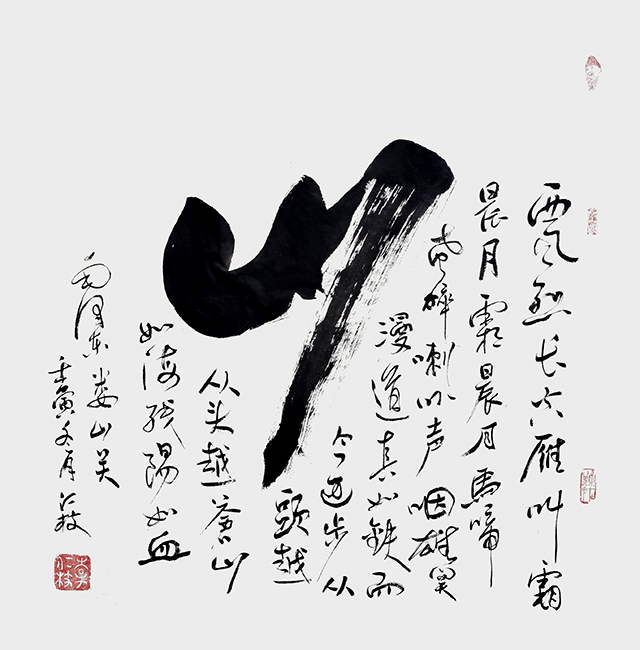 西风烈长空雁叫霜
晨月霜晨月馬蹄
声碎喇叭声咽雄関
漫道真如鉄而
今迈步从
頭越
从头越蒼山
如海残陽如血
毛泽东娄山关
壬寅冬月仁枝
李仁枝